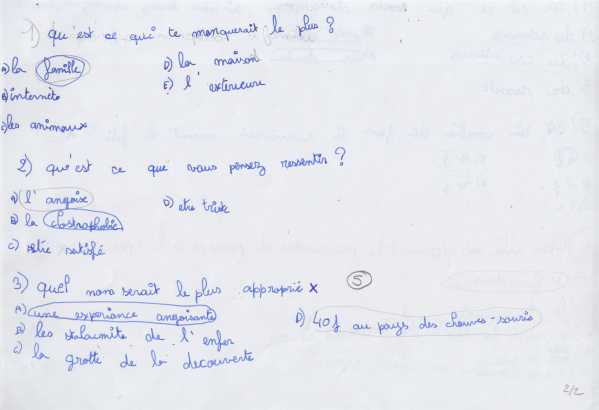 1) qu'est ce qui te manquerait le plus ?
A) la famille
D) la maison
B) internète
E) l'exterieure
C) les animaux
2) qu'est ce que vous pensez ressentir ?
A) l'angoixe
D) etre triste
B) la clostrophobie
C) etre satisfé
3) quel nom serait le plus approprié x
5
A) une experiance angoisante
D) 40j au pays des chauves-souris
B) les stalacmite de l'enfer
C) la grotte de la decouverte
2/2